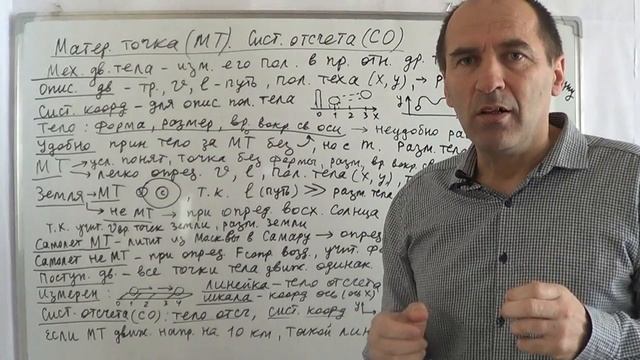 Матер. точка (МТ). Сист. отсчета (СО)
Мех. дв. тела – изм. его пол. в пр. отн. др. т
Опис. дв – тр., υ, l – путь, пол. тела (x, y), →
Сист. коорд – для опис пол. тела 0 1 2 3 X y
Тело: форма, размер, вр. вокр св оси → неудобно ра
Удобно прин тело за МТ без , но с m. Разм. тела
МТ → усл. понят, точка без формы, разм, вр. вокр. св
→ легко опрез. υ, l, пол. тела (x, y),
Земля → МТ З С т.к. l (путь) ≫ разм тела
→ не МТ → при опред. восх. Солнца
т.к. учит υ вр точек Земли, разм. Земли
Самолет МТ – летит из Москвы в Самару → опред
Самолет не МТ – при опрез. Fсопр. возд., учит. ф
Поступ. дв. – все точки тела движ. одинак.
Измерен: 0 1 2 3 4 линейка – тело отсчета
шкала – коорд ось (ось X)
Сист. отсчета (СО): тело отсч, сист. коорд
если МТ движ. напр. на 10 км, такой лин